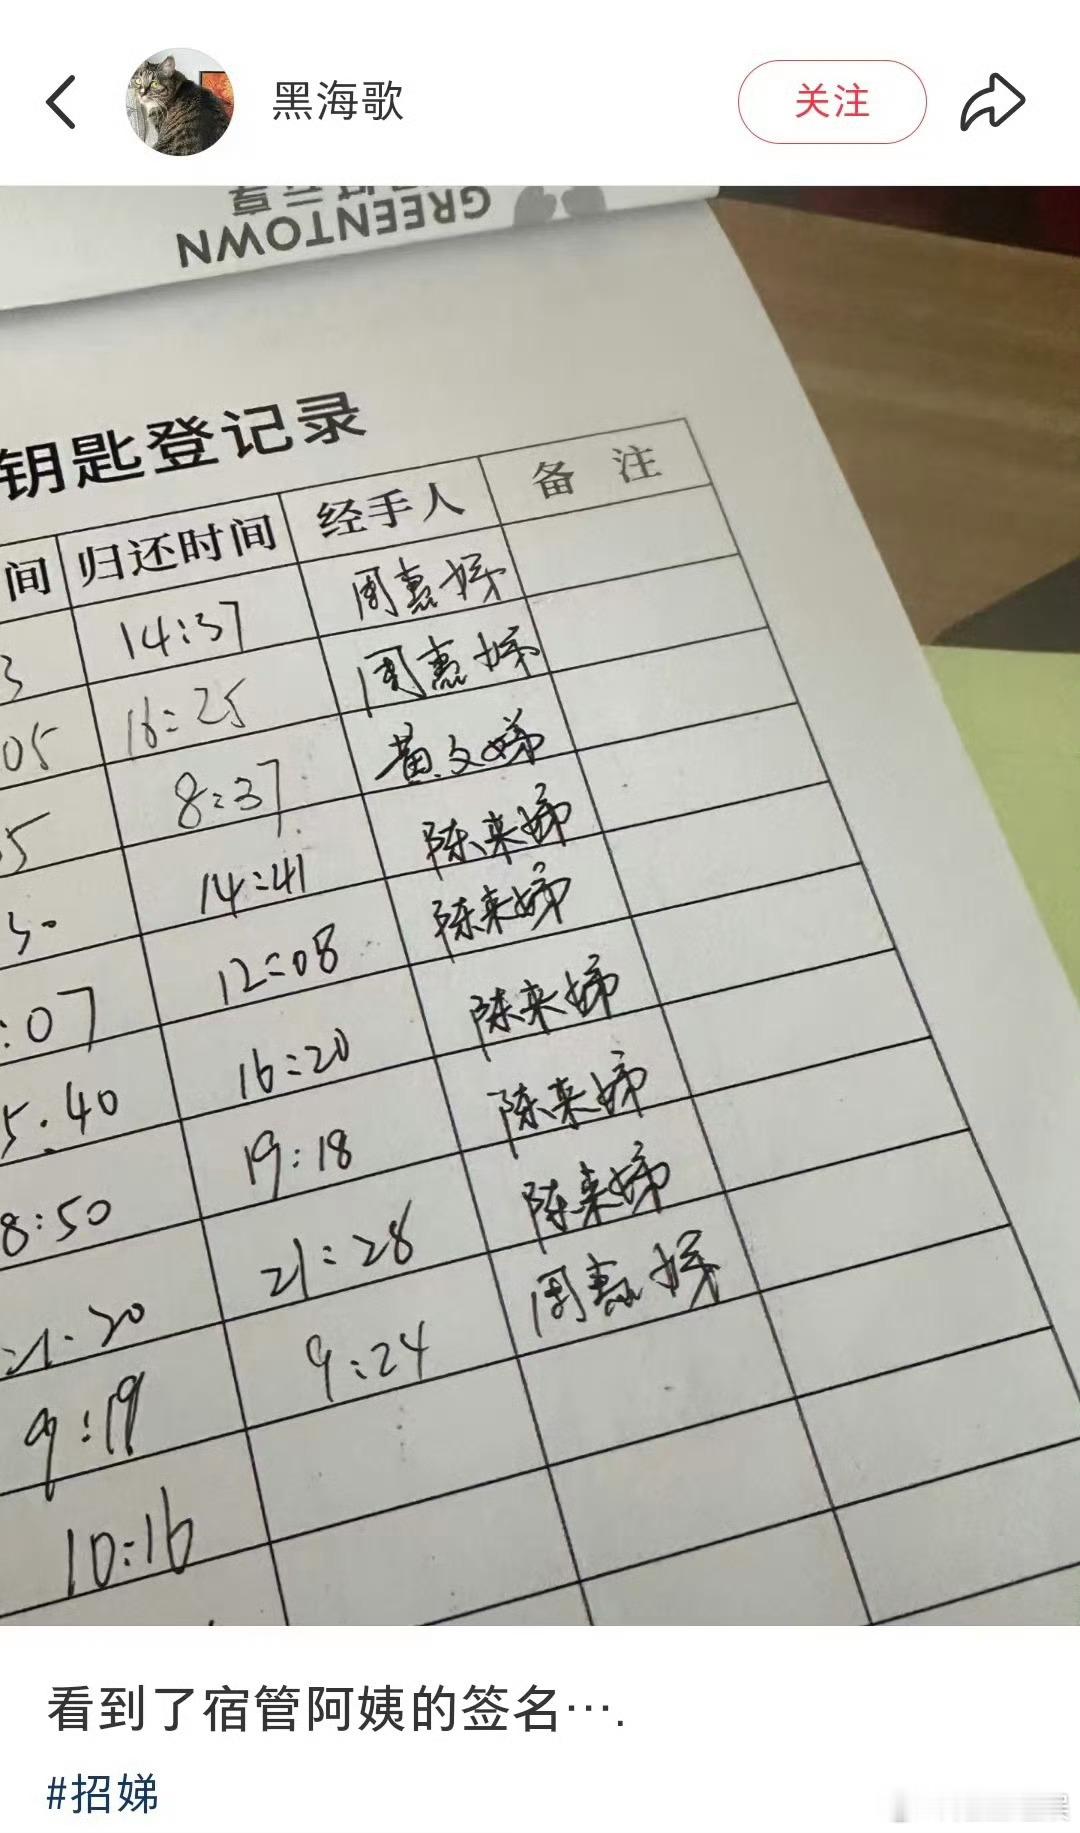 黑海歌
关注
GREENTOWN
钥匙登记录
间 归还时间 经手人 备 注
3 14:37 周惠娣
05 16:25 周惠娣
5 8:37 黄文娣
30 14:41 陈来娣
:07 12:08 陈来娣
5:40 16:20 陈来娣
8:50 19:18 陈来娣
21:20 21:28 陈来娣
9:19 9:24 周惠娣
10:16
看到了宿管阿姨的签名….
#招娣